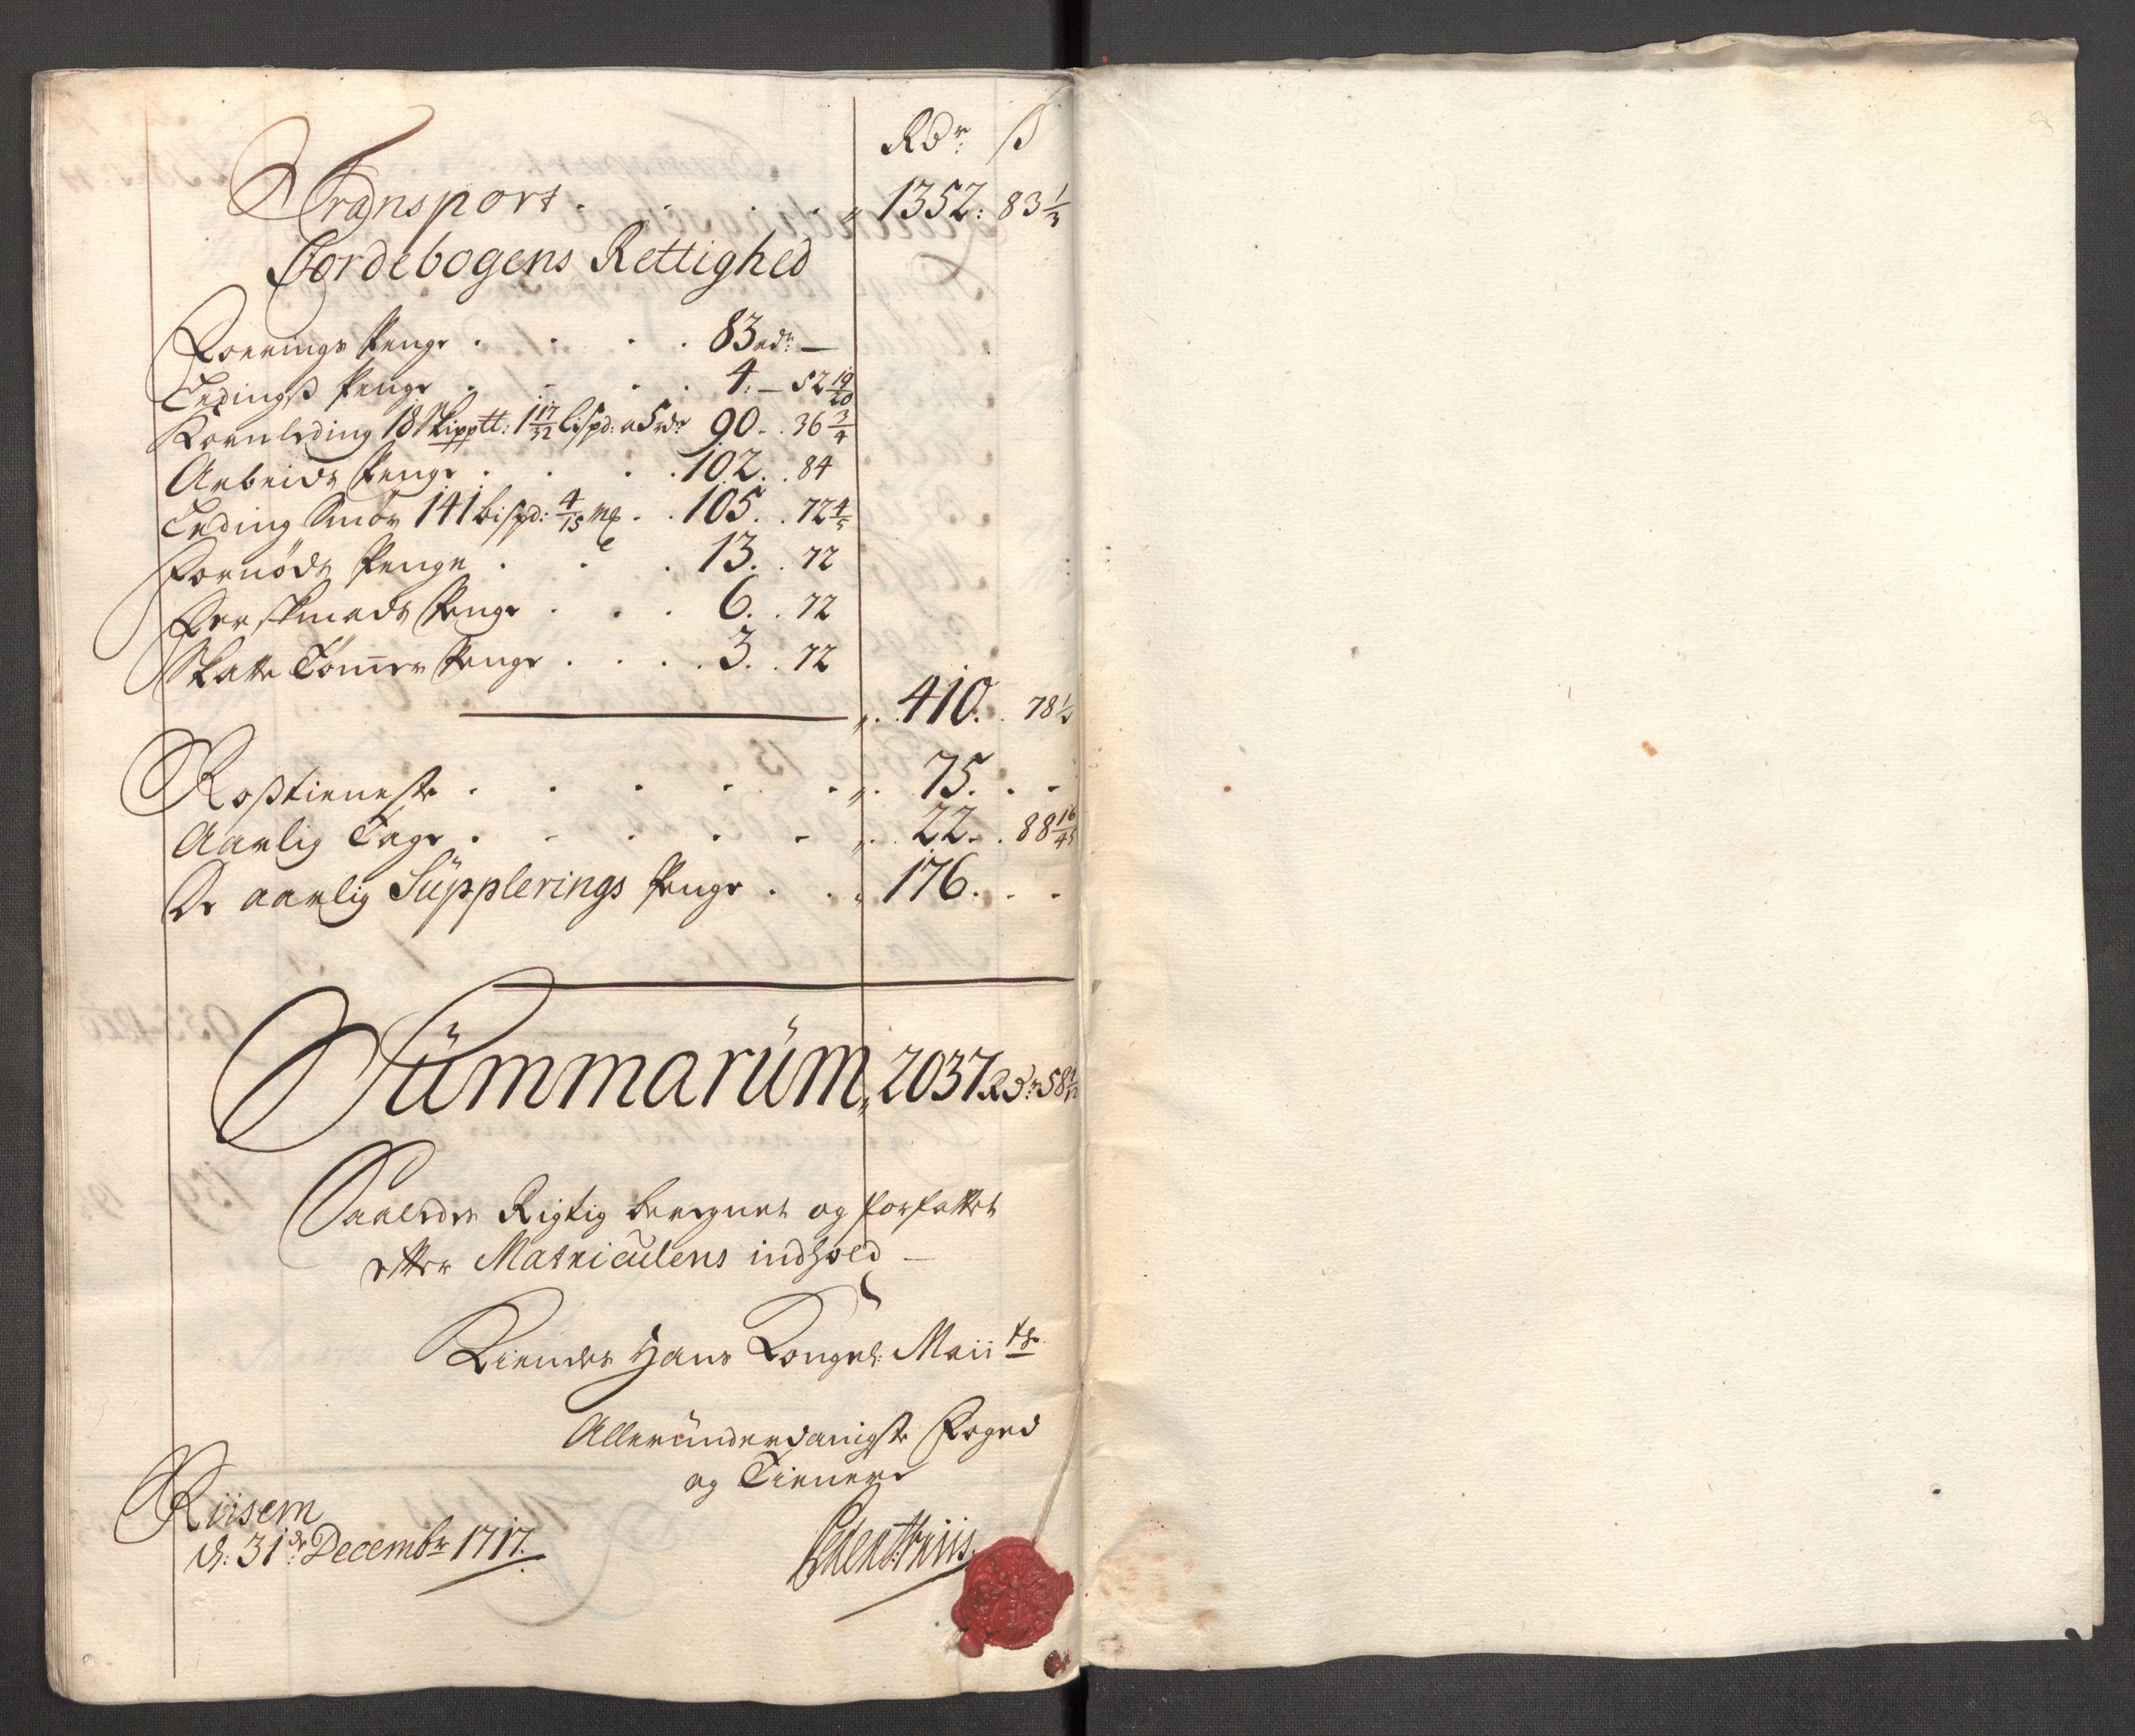 Rdr: ß
Transport . . . . „ 1352: 83 1/3
Jordebogens Rettighed
Foerings Penge . . . . 83 rdr: —
Ledingß Penge . . . . 4: — 52 19/20
Kornleding 18 Skipptt: 1 17/32 Lispd: a 5 rdr 90 . . 36 3/4
Arbeids Penge . . . . 102 . . 84
Leding Smör 141 bispd: 4/15 mk . . 105 . . 72 4/5
Fornöds Penge . . . 13 . . 72
Ferskmads Penge . . . 6 . . 72
Skatte Tömer Penge . . . . 3 . . 72
„ . 410 . . 78 1/2
Roßtieneste . . . . . „ . 75 . . -
Aarlig Tage . . . . . „ . 22 . . 88 16/45
De aarlig Süpplerings Penge . . „ 176 . . -
Sümmarüm „ 2037 Rdr: 58
Saaledes Rigtig beregnet og forfattet
efter Matriculens indhold —
Kiendes Hans Kongel: Maii ts.
Alleründerdanigste Foged
og Tienere
Riisem
d: 31 dr: Decembr 1717.